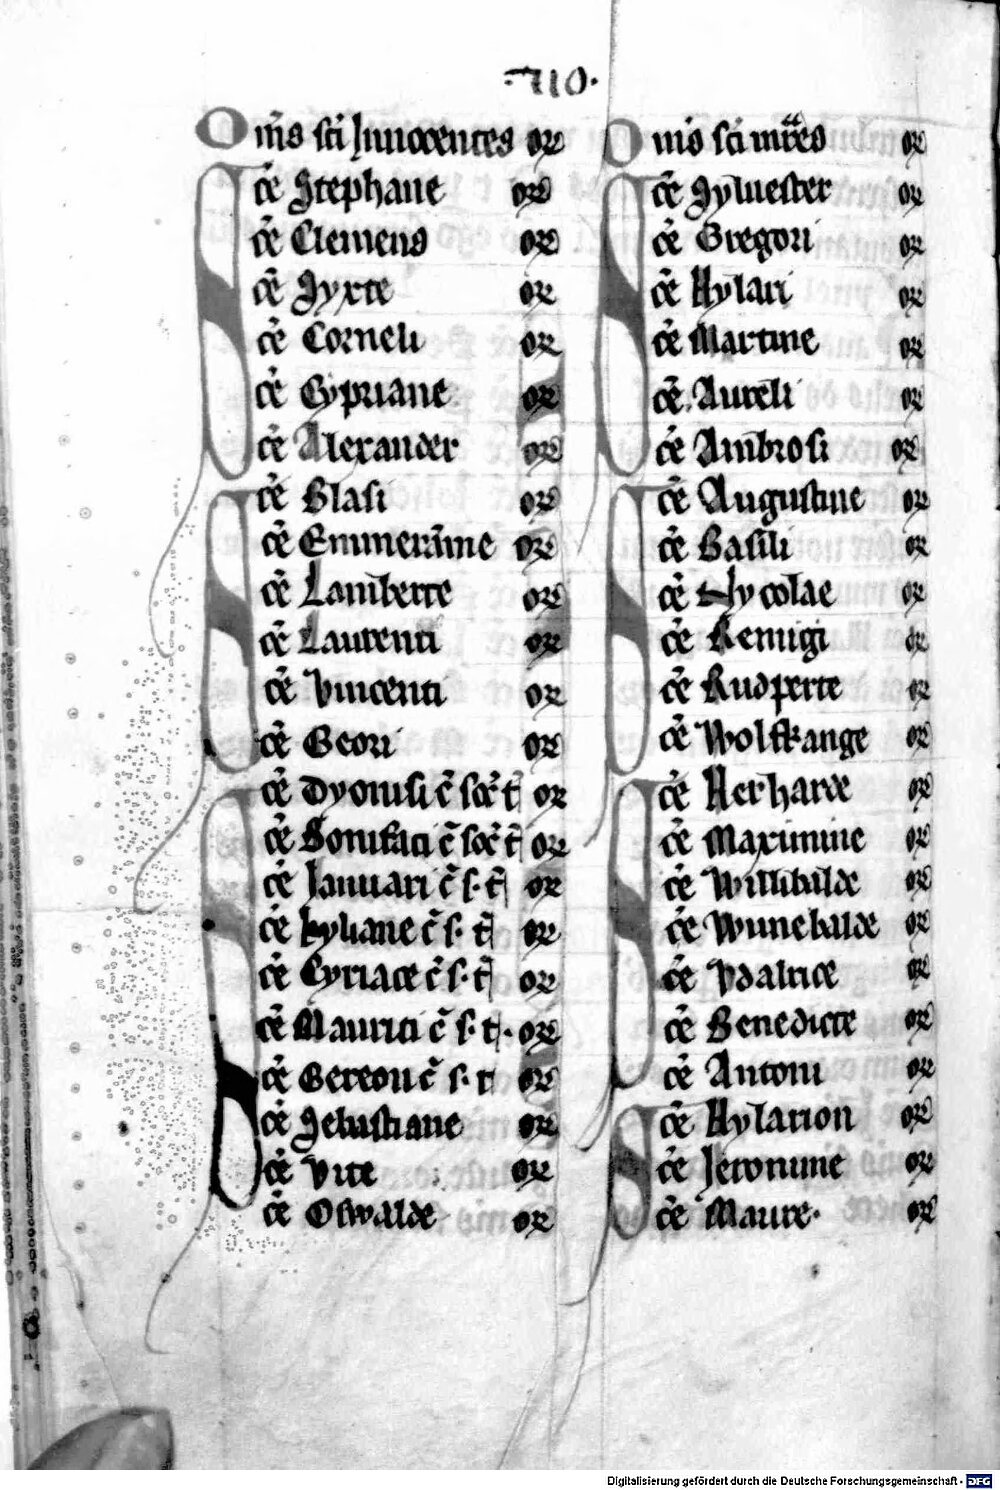 ·710·
Om̄s sc̄i Innocentes or̄
Sc̄e Stephane or̄
c̄e Clemens or̄
c̄e Syxte or̄
c̄e Corneli or̄
c̄e Cypriane or̄
c̄e Alexander or̄
Sc̄e Blasi or̄
c̄e Emmerām̄e or̄
c̄e Lamberte or̄
c̄e Laurenti or̄
c̄e Vincenti or̄
c̄e Geori or̄
Sc̄e Dyonisi c̄ soc̄ t̄ or̄
c̄e Bonifaci c̄ soc̄ t̄ or̄
c̄e Ianuari c̄ s· t̄ or̄
c̄e kyliane c̄ s· t̄ or̄
c̄e Cyriace c̄ s· t̄ or̄
c̄e Mauriti c̄ s· t· or̄
c̄e Gereon c̄ s· t or̄
c̄e Sebastiane or̄
c̄e Vite or̄
c̄e Oswalde or̄
Om̄s sc̄i mr̄es or̄
Sc̄e Sylvester or̄
c̄e Gregori or̄
c̄e Hylari or̄
c̄e Martine or̄
c̄e Aureli or̄
c̄e Ambrosi or̄
Sc̄e Augustine or̄
c̄e Basili or̄
c̄e Nycolae or̄
c̄e Remigi or̄
c̄e Rudperte or̄
c̄e Wolfkange or̄
Sc̄e Herharde or̄
c̄e Maximine or̄
c̄e Willibalde or̄
c̄e Wunebalde or̄
c̄e Vdalrice or̄
c̄e Benedicte or̄
c̄e Antoni or̄
Sc̄e Hylarion or̄
c̄e Jeronime or̄
c̄e Maure· or̄
Digitalisierung gefördert durch die Deutsche Forschungsgemeinschaft - DFG